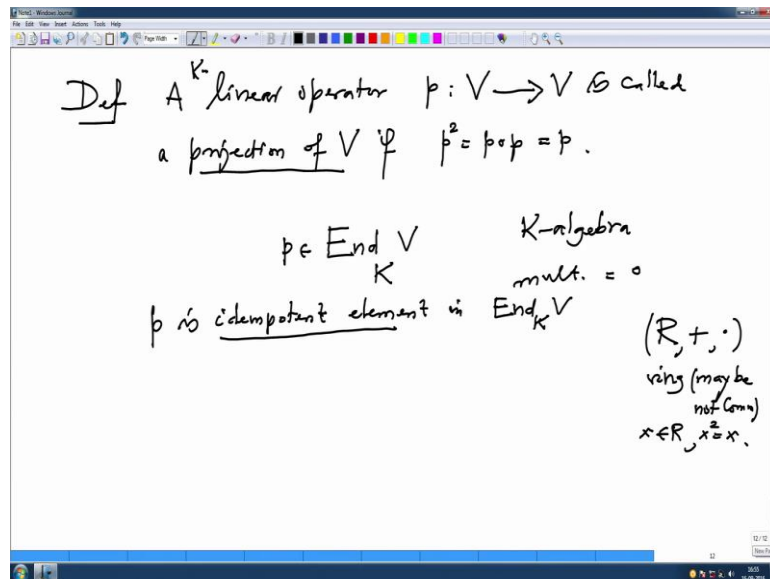 Note1 - Windows Journal
File Edit View Insert Actions Tools Help
Page Width
Def A K-linear operator p : V → V is called
a projection of V if p² = p∘p = p.
p ∈ End_K V K-algebra
mult. = ∘
p is idempotent element in End_K V
(R, +, ·)
ring (may be
not Comm)
x ∈ R, x² = x.
12 / 12
12
New Pa
16:55